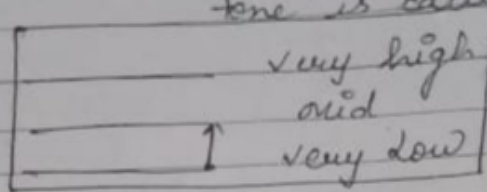 tone is
very high
mid
very low